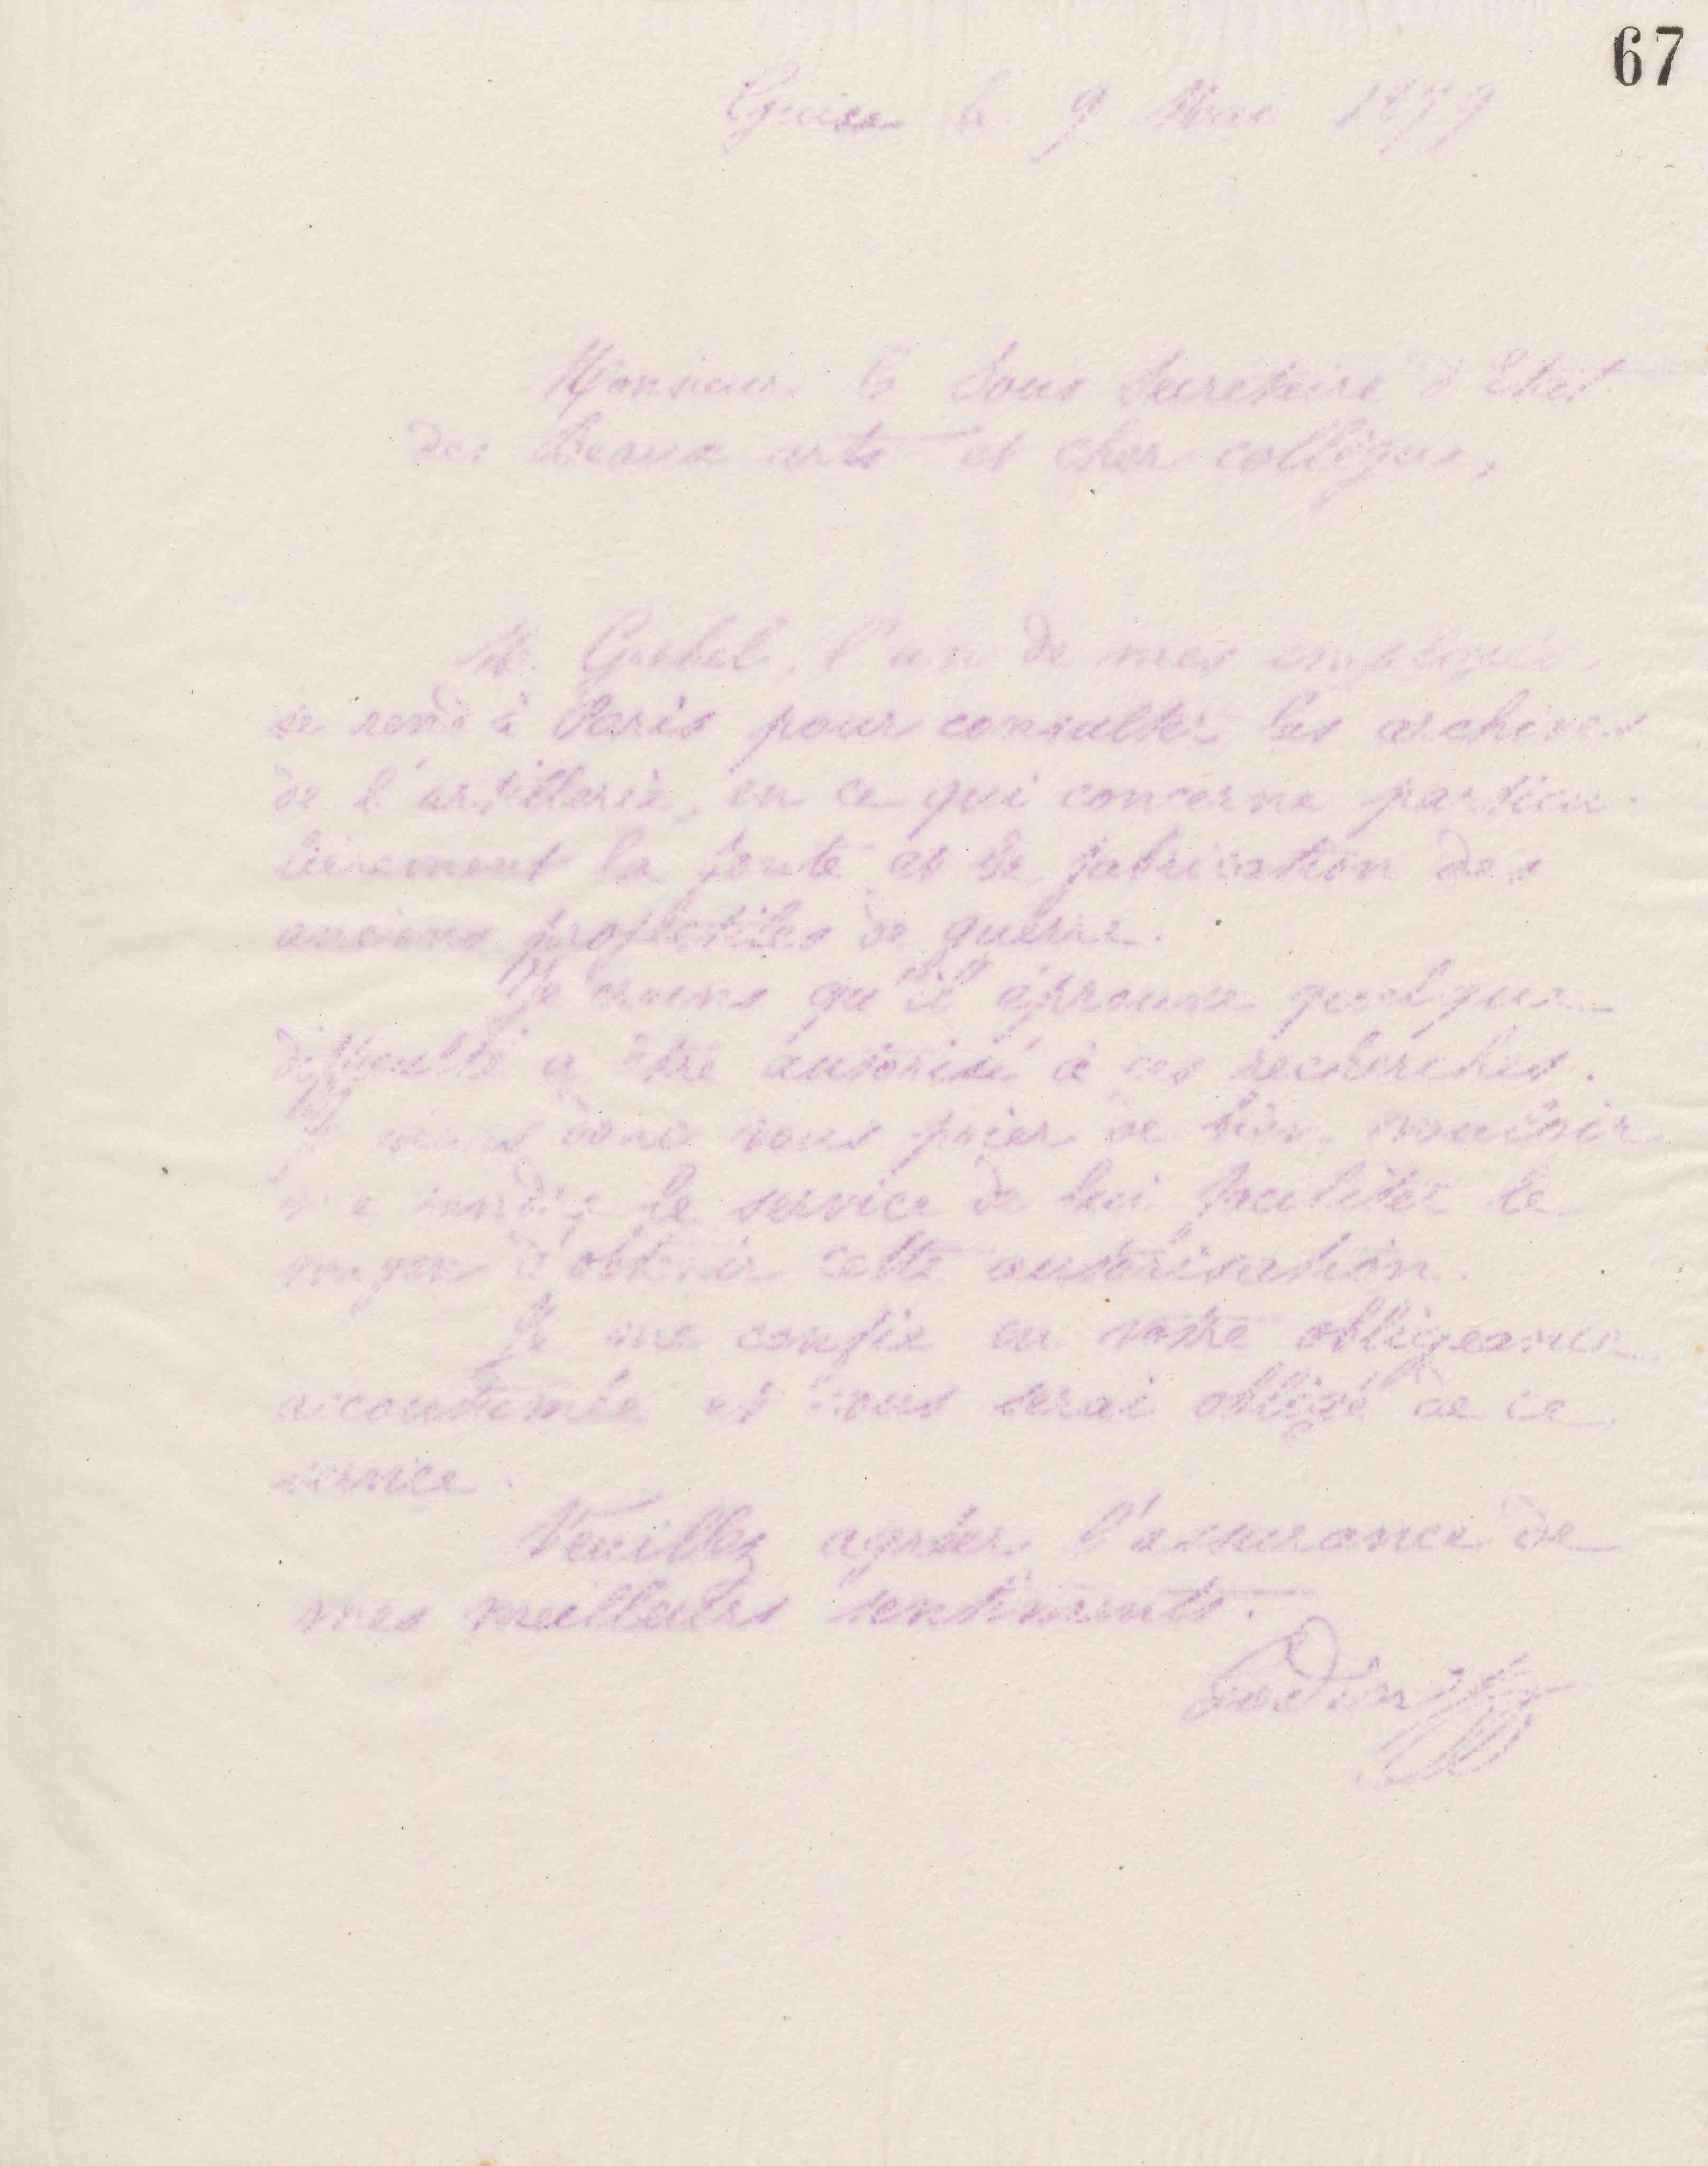 67
Guise le 9 Mai 1879
Monsieur le Sous Secretaire d'Etat
des Beaux arts et cher collègue,
M. Grebel, l'un de mes employés
se rend à Paris pour consulter les archives
de l'artillerie, en ce qui concerne particu-
lièrement la fonte et la fabrication des
anciens projectiles de guerre.
Je crains qu'il éprouve quelque
difficulté a être autorisé à ces recherches.
Je viens donc vous prier de bien vouloir
me rendre le service de lui faciliter le
moyen d'obtenir cette autorisation.
Je me confie en votre obligeance
accoutumée et vous serai obligé de ce
service.
Veuillez agréer l'assurance de
mes meilleurs sentiments.
Godin